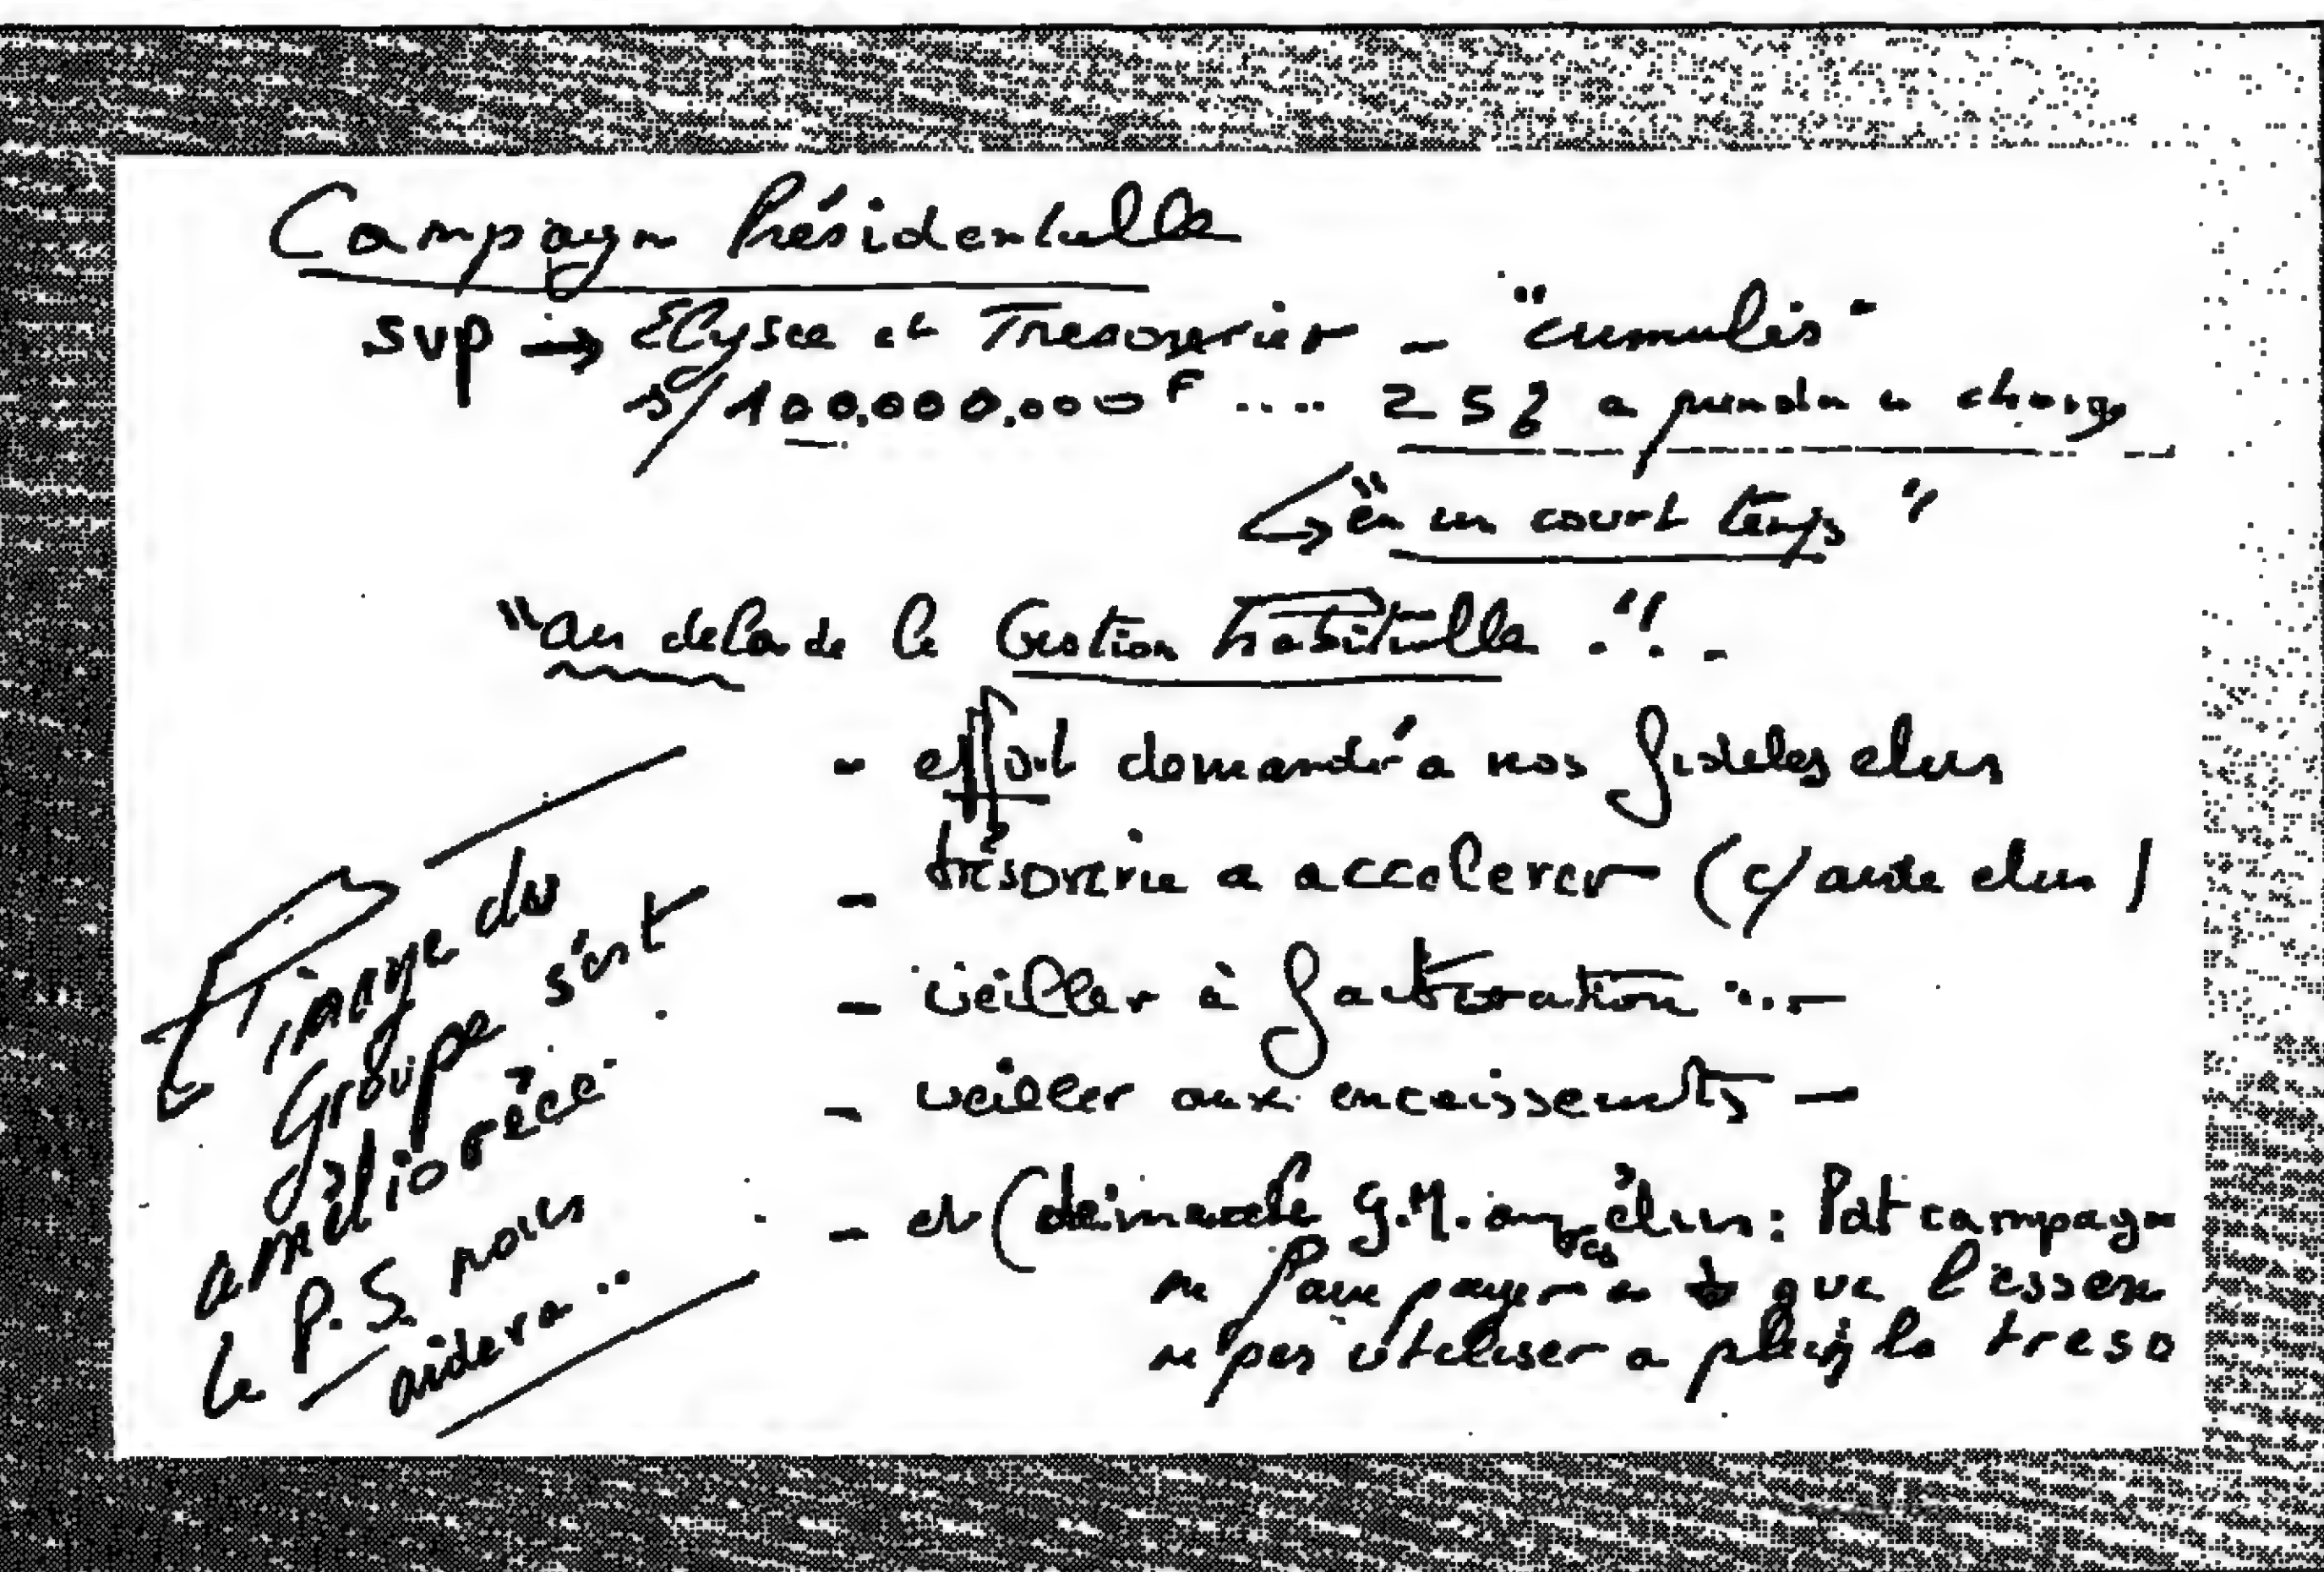 Campagne Présidentielle
SVP → Elysée et Tresorerier - "cumulés"
s/ 100.000.000 F .... 25% a prendre en charge
"en un court temps"
"au dela de la Gestion habituelle". -
- effort demandé a nos fideles elus
- trésorerie a accelerer (c/ autre elus)
- veiller à facturation ... -
- veiller aux encaissements -
- et (demande G.M. aux élus : Pdt campagne
ne payer que l'essen
ne pas utiliser a plein la treso
image du
Groupe s'est
améliorée
le P.S. nous
aidera ..